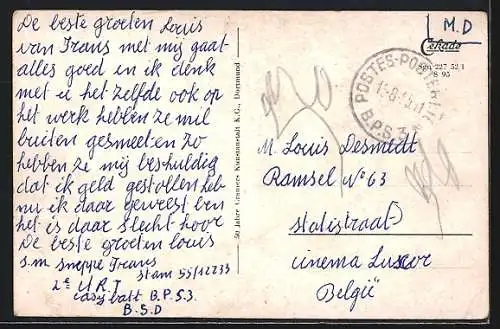 De beste groeten Louis
van Frans met mij gaat
alles goed en ik denk
met u het zelfde ook op
het werk hebben ze mil
buiten gesmeeten zo
hebben ze mij beshuldig
dat ik geld gestollen heb
nu ik daar geweest ben
het is daar slecht hoor
De beste groeten louis
s.m Sneppe Frans
stam 55/12233
2e U.R.T
easy batt B.P.S.3.
B.S.D
50 Jahre Cramers Kunstanstalt K.G., Dortmund
M.D
Cekade
227 52 1
8 95
POSTES-POSTERIJEN
B.P.S.3
M. Louis Desmedt
Ramsel No 63
statistraat
cinema Luxor
België